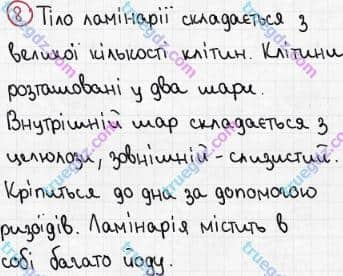 8 Тіло ламінарії складається з
великої кількості клітин. Клітини
розташовані у два шари.
Внутрішній шар складається з
целюлози, зовнішній - слизистий.
Кріпиться до дна за допомогою
ризоїдів. Ламінарія містить в
собі багато йоду.
truegdz.com